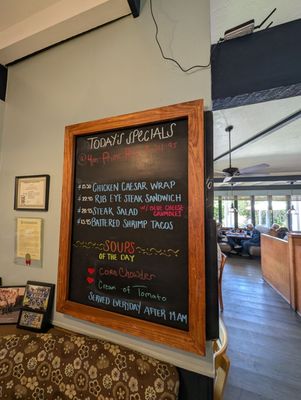 Today's Specials
Chicken Caesar Wrap
Rib Eye Steak Sandwich
Steak Salad w/ Blue Cheese Crumbles
Battered Shrimp Tacos
Soups
of the Day
Corn Chowder
Cream of Tomato
Served Everyday After 11AM